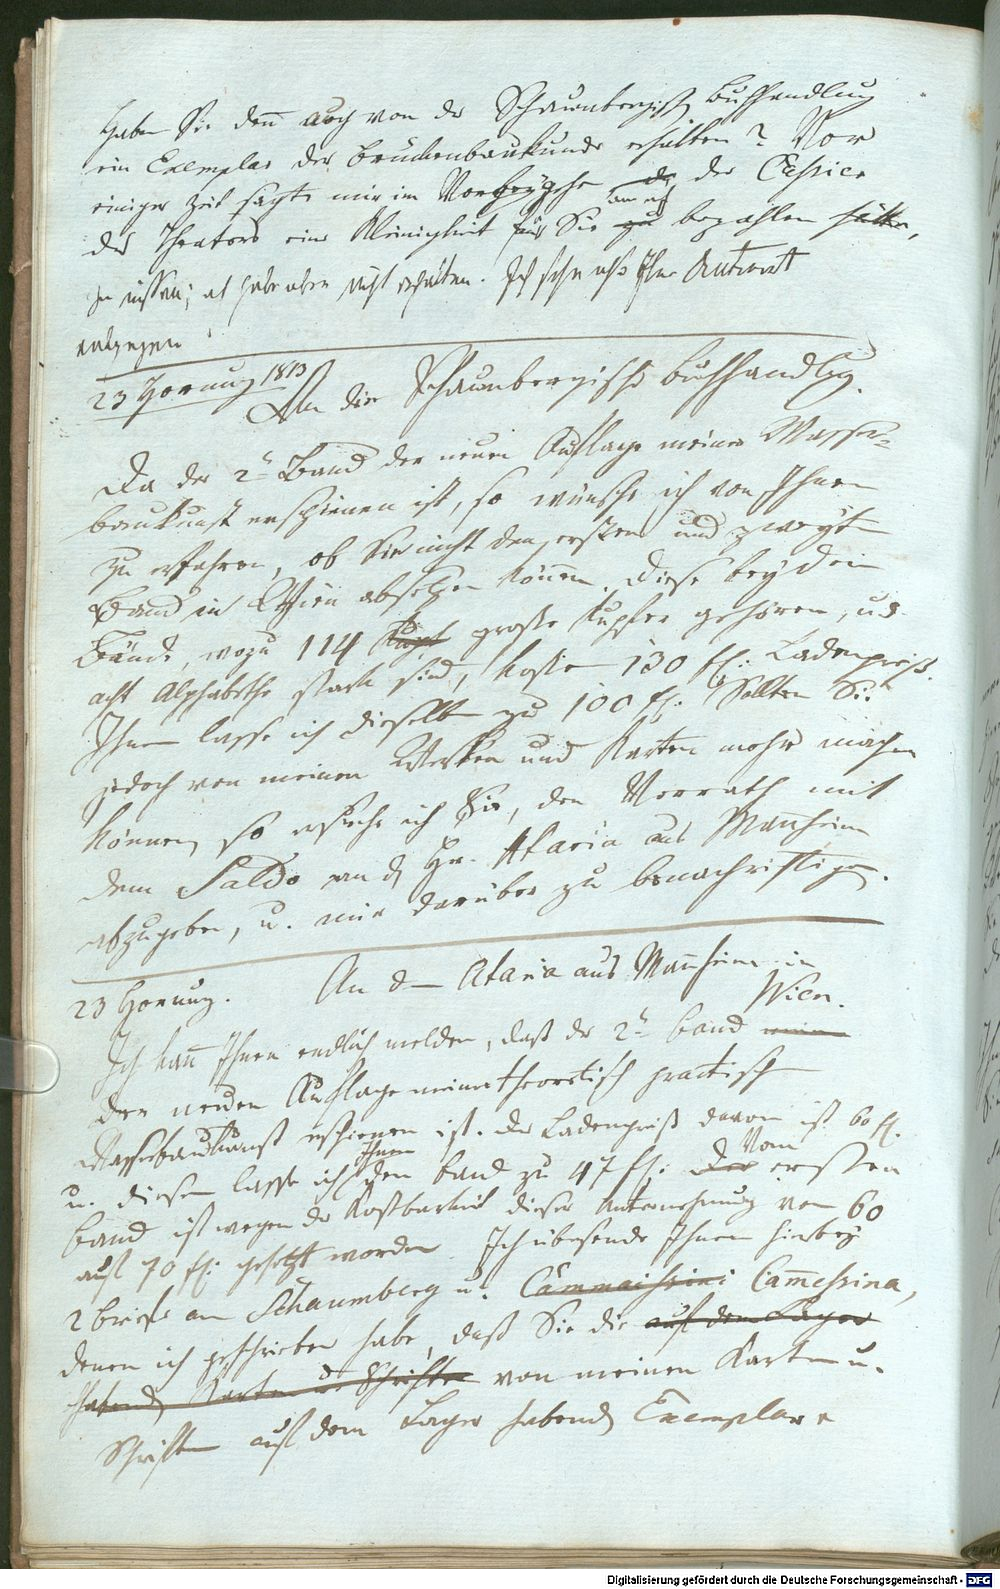 Haben Sie denn auch von der Schaumbergisch Buchhandlung
ein Exemplar der Brückenbaukunde erhalten? Vor
einiger Zeit sagte mir im Vorbeygehn der Cassier
des Theaters eine Kleinigkeit für Sie zu bezahlen hätte,
zu müssen; ich habe aber nicht erhalten. Ich sehe also Ihrer Antwort
entgegen
23 Hornung 1813 An die Schaumbergische Buchhandlg.
Da der 2te Band der neuen Auflage meiner Wasser-
baukunst erschienen ist, so wünsche ich von Ihnen
zu erfahren, ob Sie nicht den ersten und zweyten
Band in Wien absetzen können. Diese beyden
Bände, wozu 114 Kupf große Kupfer gehören, und
acht Alphabethe stark sind, kosten 130 fl. Ladenpreiß.
Ihnen lasse ich dieselben zu 100 fl. Sollten Sie
jedoch von meinen Werken und Karten mehr machen
können, so ersuche ich Sie, den Vorrath mit
dem Saldo an Hr. Ataria aus Manheim
abzugeben, u. mir darüber zu benachrichtigen.
23 Hornung. An Ataria aus Manheim in
Wien.
Ich kann Ihnen endlich melden, daß der 2te Band meine
der neuen Auflage meiner theoretisch practisch
Wasserbaukunst erschienen ist. Der Ladenpreiß davon ist 60 fl.
u. diesen lasse ich Ihnen den Band zu 47 fl. Der Vom ersten
Band ist wegen der Kostbarkeit dieser Unternehmung von 60
auf 70 fl. gesetzt worden. Ich übersende Ihnen hierbey
2 briefe an Schaumberg u. Cammaissini Camessina,
denen ich geschrieben habe, daß Sie die auf dem Lager
habende Karten u Schriften von meinen Karten u.
Schriften auf dem Lager habende Exemplare
Digitalisierung gefördert durch die Deutsche Forschungsgemeinschaft - DFG